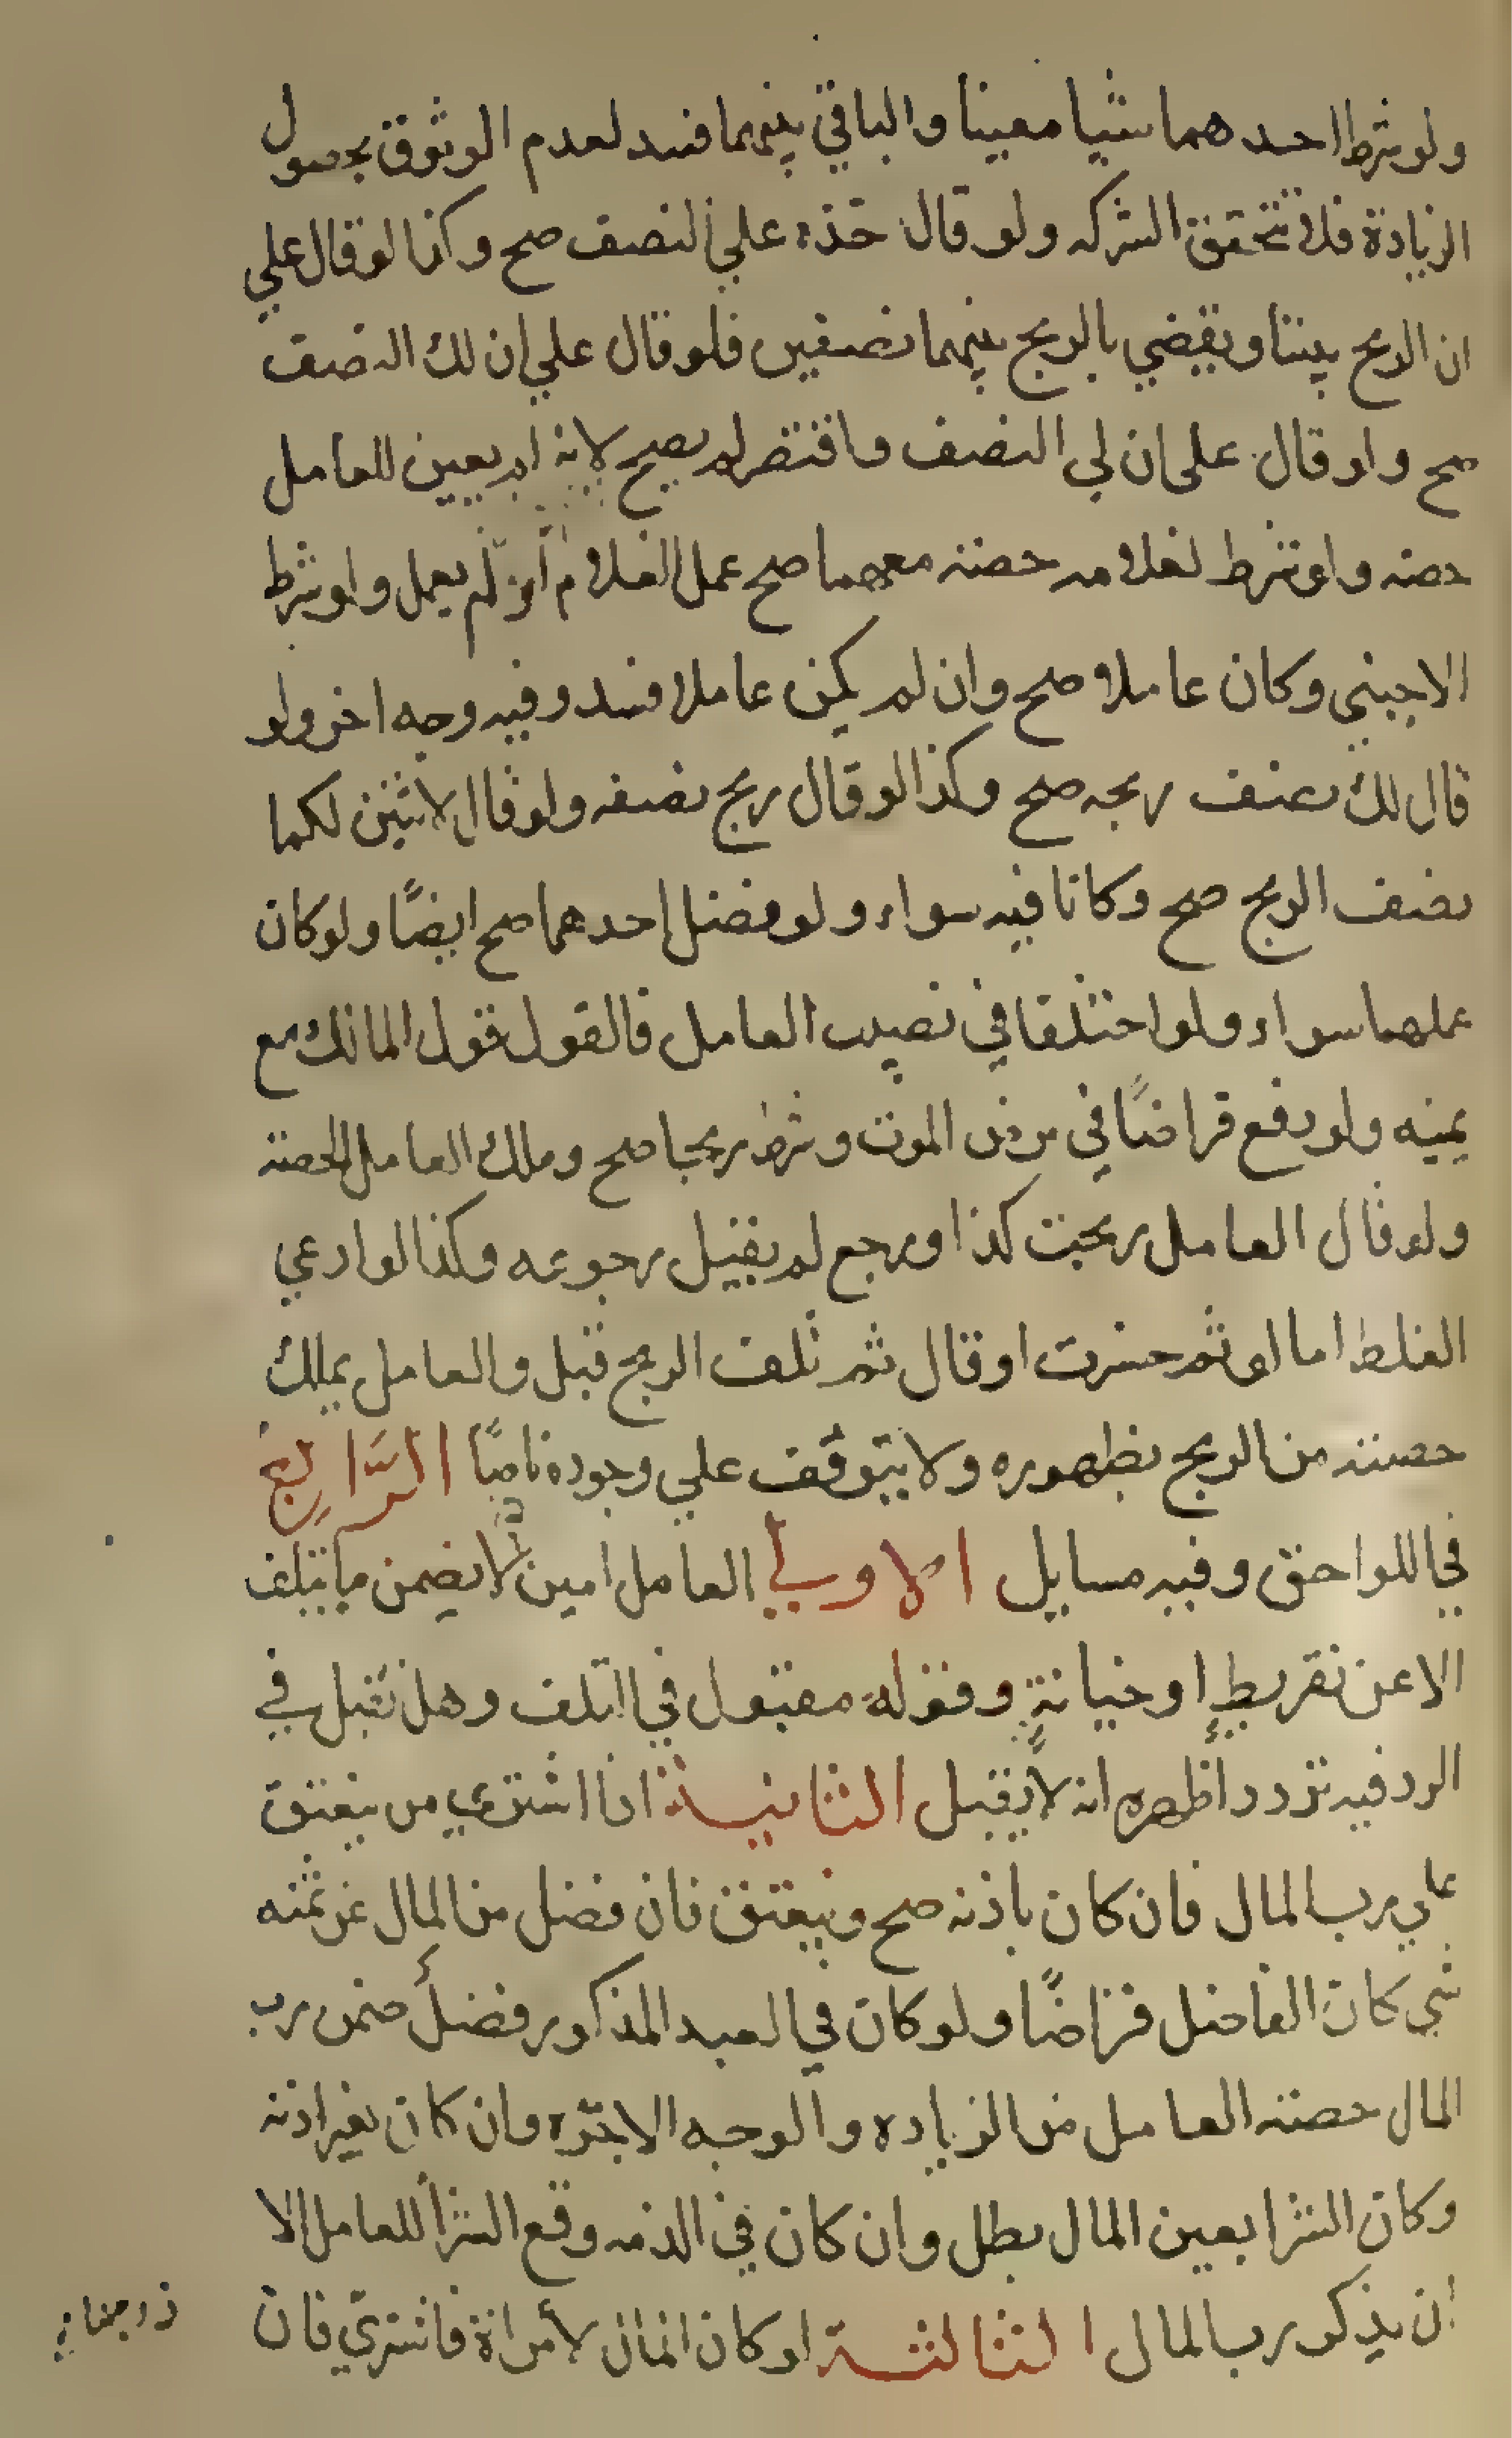 ولو شرط احدهما شيا معينا والباقي بينهما فسد لعدم الوثوق بحصول
الزيادة فلا تتحقق الشركه ولو قال خذه علي النصف صح وكذا لو قال علي
ان الربح بيننا ويقضي بالربح بينهما نصفين فلو قال علي ان لك النصف
صح ولو قال على ان لي النصف واقتصر لم يصح لانه لم يعين للعامل
حصه ولو شرط لغلامه حصته معهما صح عمل الغلام او لم يعمل ولو شرط
الاجنبي وكان عاملا صح وان لم يكن عاملا فسد وفيه وجه اخر ولو
قال لك نصف ربحه صح وكذا لو قال ربح نصفه ولو قال لاثنين لكما
نصف الربح صح وكانا فيه سواء ولو فضل احدهما صح ايضًا ولو كان
عملهما سواء ولو اختلفا في نصيب العامل فالقول قول المالك مع
يمينه ولو دفع قراضًا في مرض الموت وشرط ربحا صح وملك العامل الحصة
ولو قال العامل ربحت كذا ورجع لم يقبل رجوعه وكذا لو ادعي
الغلط اما لو ثم خسرت او قال ثم تلف الربح قبل والعامل يملك
حصته من الربح بظهوره ولا يتوقف علي وجوده ناضًا الرَّابِع
في اللواحق وفيه مسايل الاولي العامل امين لا يضمن ما يتلف
الا عن تفريطٍ او خيانةٍ وقوله مقبول في التلف وهل يقبل في
الرد فيه تردد اظهره انه لا يقبل الثانيـة اذا اشتري من ينعتق
علي رب المال فان كان باذنه صح وينعتق فان فضل من المال عن ثمنه
شي كان الفاضل قراضًا ولو كان في العبد المذكور فضل ضمن رب
المال حصته العامل من الزياده والوجه الاجره وان كان بغير اذنه
وكان الشرا بعين المال بطل وان كان في الذمه وقع الشرا للعامل الا
ان يذكر رب المال الثالثـة لو كان المال لأمراة فاشتري فان
زوجها